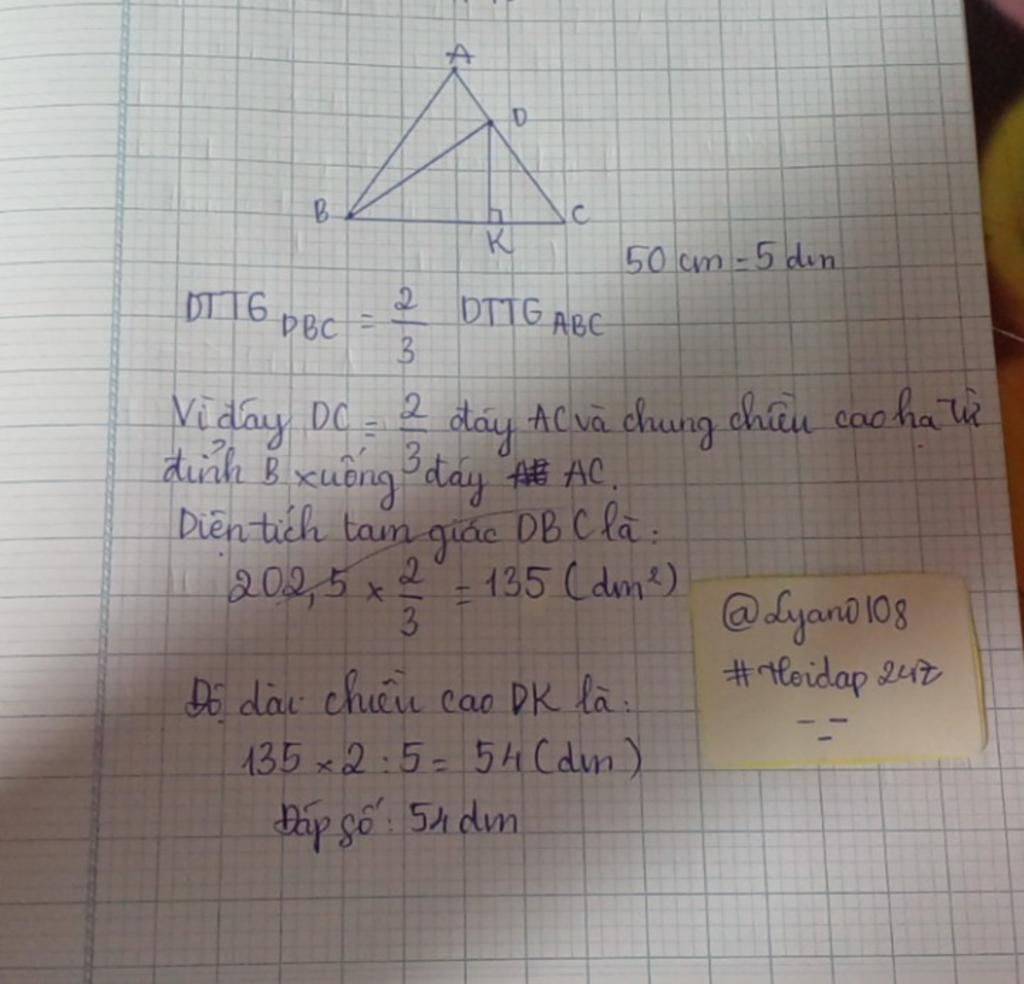 A
D
B
C
K
50 cm = 5 dm
DTTG DBC = 2/3 DTTG ABC
Vì đáy DC = 2/3 đáy AC và chung chiều cao hạ từ
đỉnh B xuống đáy AC.
Diện tích tam giác DBC là:
202,5 × 2/3 = 135 (dm²)
@Lyan0108
#Hoidap247
Độ dài chiều cao DK là:
135 × 2 : 5 = 54 (dm)
Đáp số: 54 dm